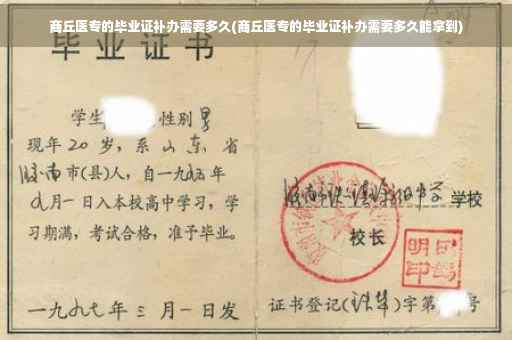 商丘医专的毕业证补办需要多久(商丘医专的毕业证补办需要多久能拿到)
毕业证书
学生 性别男
现年20岁,系山东省
济南市(县)人,自一九九五年
九月一日入本校高中学习,学
习期满,考试合格,准予毕业。
一九九七年三月一日发
济南市 中学 学校
校长
证书登记( )字第 号